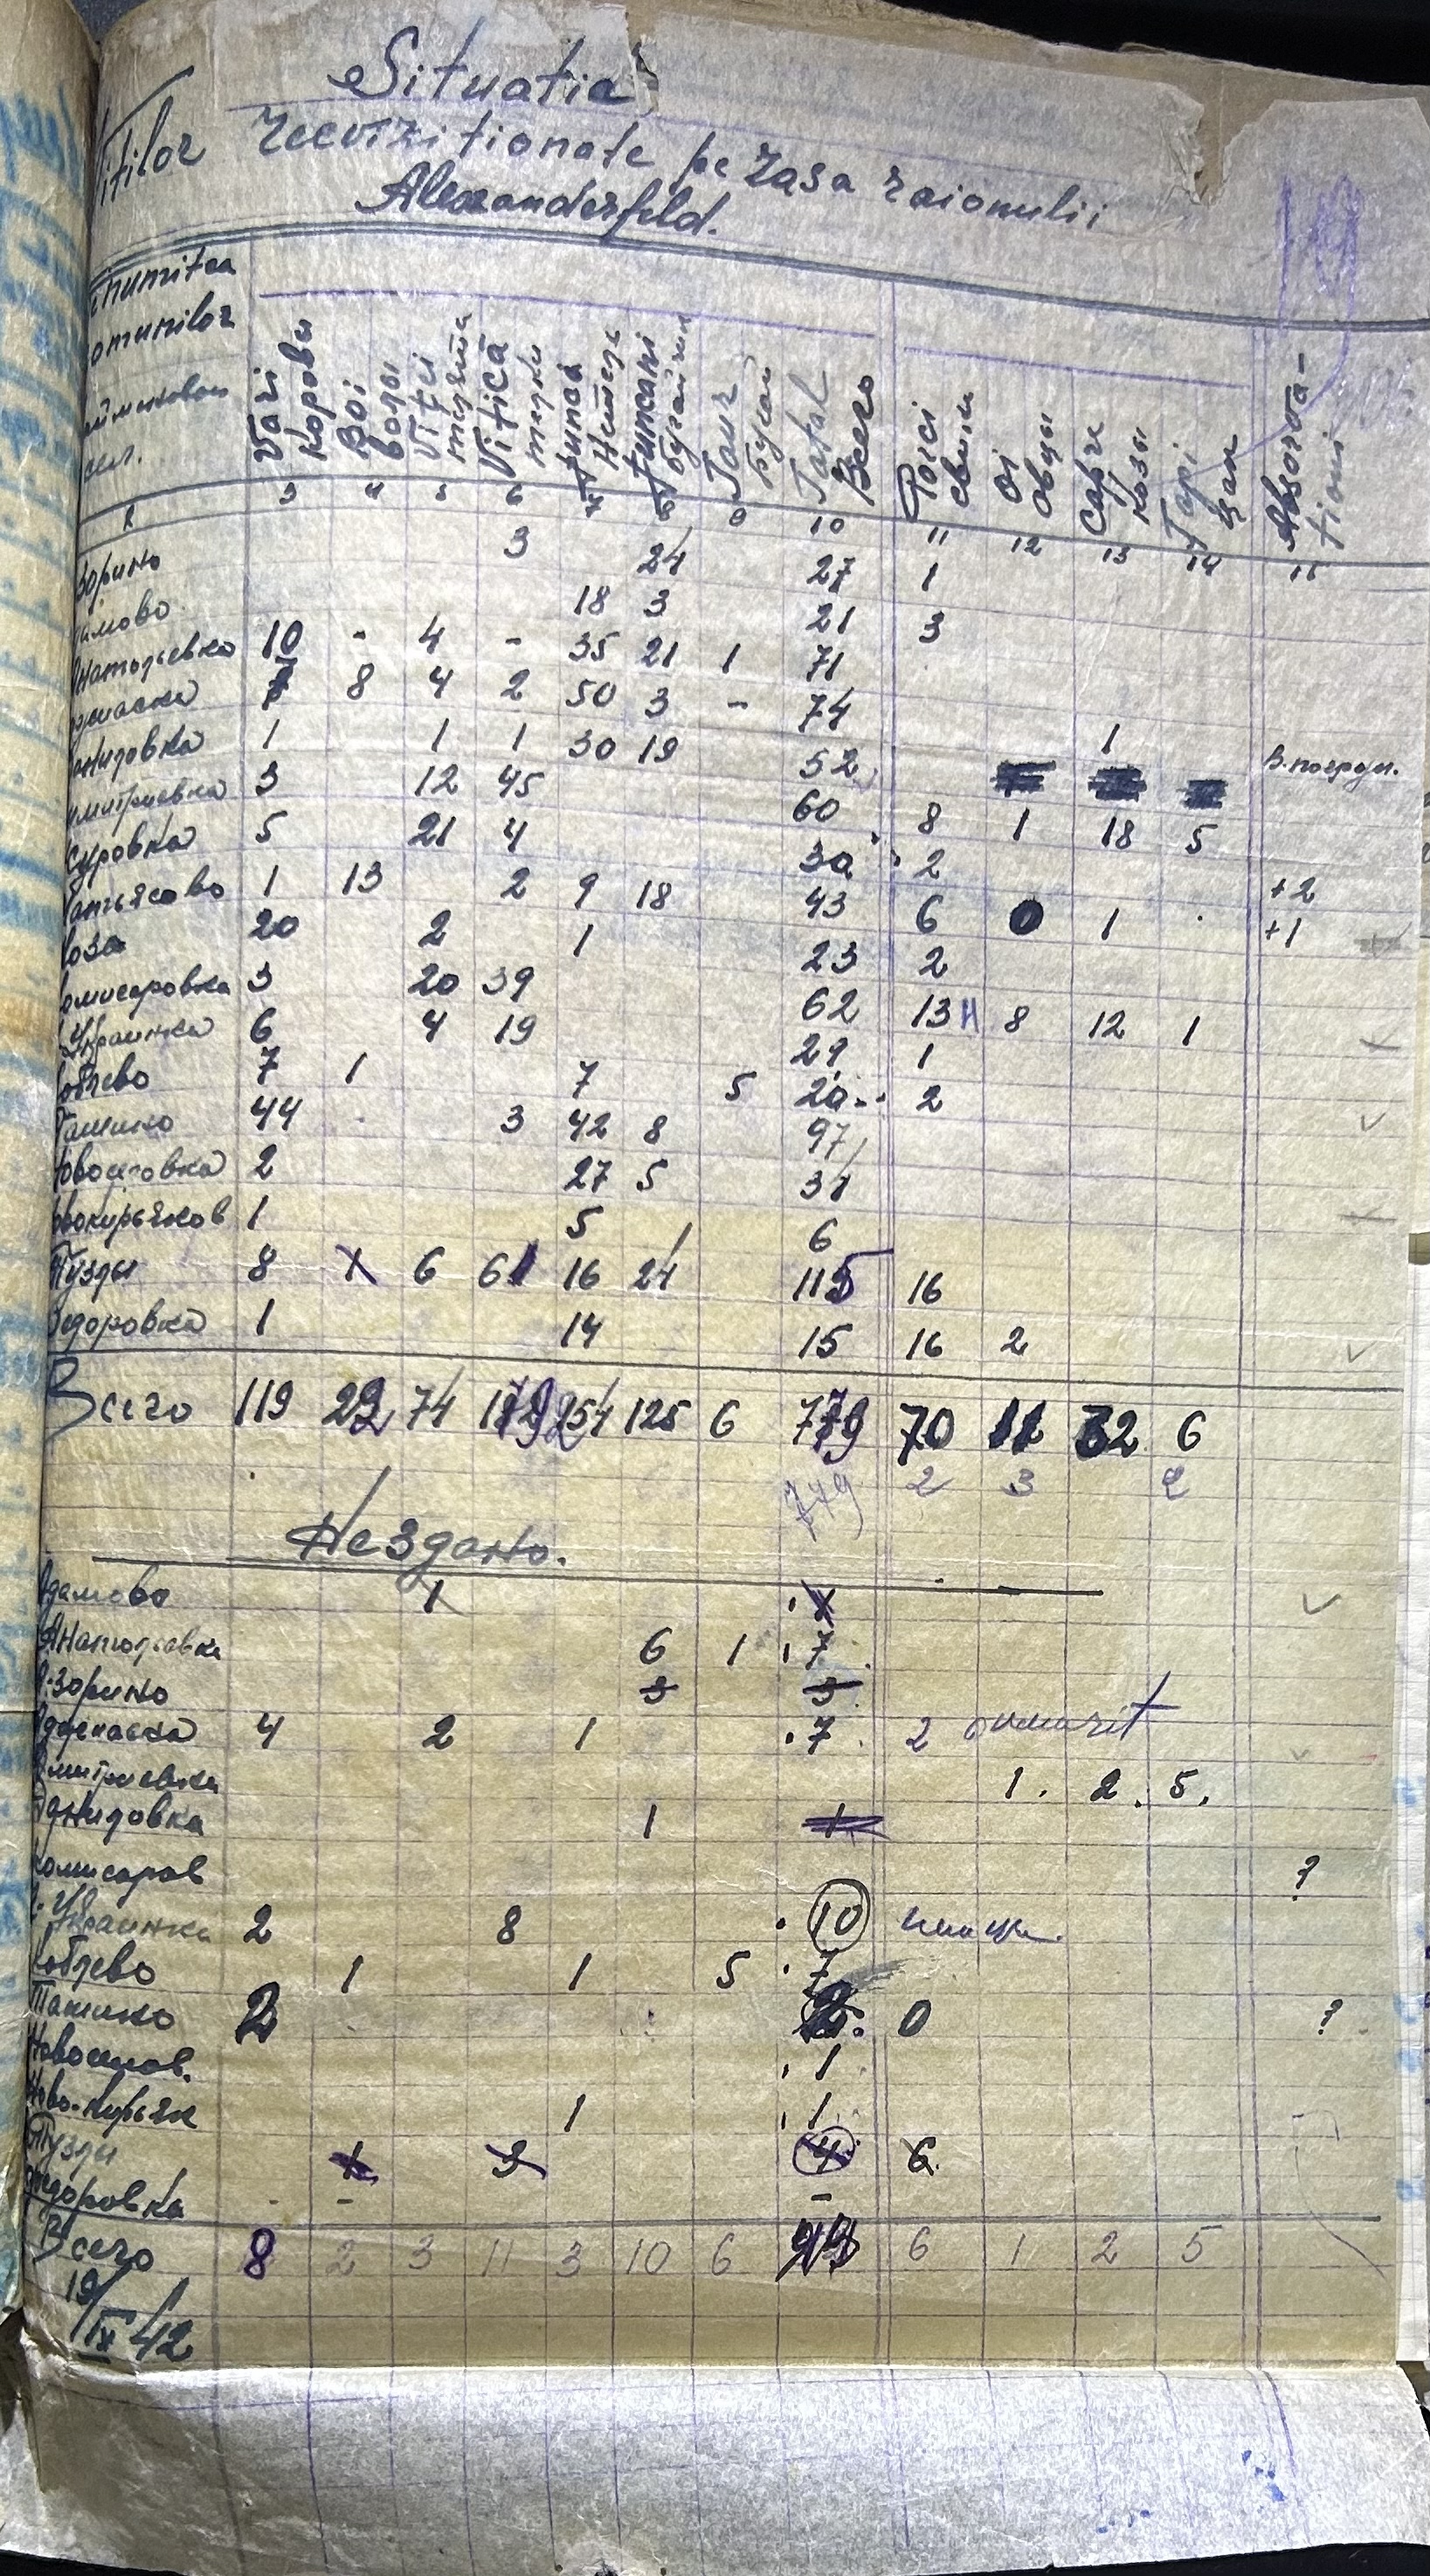 Situatia
Vitilor recvizitionate pe raza raionului
Alexanderfeld.
19
Denumitea comunilor
сел.
Vaci Корови
Boi Волы
Vitei телята
Vitică телки
Junci Нетеле
Juncani бугайчик
Taur Бугай
Total Всего
Porci свиньи
Oi Овцы
Capre Козы
Tapi Цап
Absorva-tiuni
2 3 4 5 6 7 8 9 10 11 12 13 14 15
Зорино 3 24 27 1
дамово 18 3 21 3
Анатольевка 10 - 4 - 35 21 1 71
7 8 4 2 50 3 - 74
1 1 1 30 19 52 1
митриевка 3 12 45 60 8 1 18 5
5 21 4 30 2 +2
1 13 2 9 18 43 6 0 1 +1
20 2 1 23 2
омисаровка 3 20 39 62 13 8 12 1
Украинка 6 4 19 29 1
облево 7 1 7 5 20 2
Ташино 44 3 42 8 97
овоселовка 2 27 5 31
овокирьяков 1 5 6
Тузлы 8 6 61 16 24 115 16
едоровка 1 14 15 16 2
Всего 119 22 74 179 254 125 6 779 70 11 32 6
749 2 3 2
Нездано.
Адамово 1
Анатольевка 6 1 7
Зорино 3 3
4 2 1 7 2
Дмитриевка 1. 2. 5.
1 1
Комисаров ?
Украинка 2 8 10
Коблево 1 1 5 7
Ташино 2 2 0 ?
Новоселов. 1
Ново-кирьяк 1 1
Тузлы 1 3 4 6
Федоровка - -
Всего 8 2 3 11 3 10 6 6 1 2 5
19/IX 42